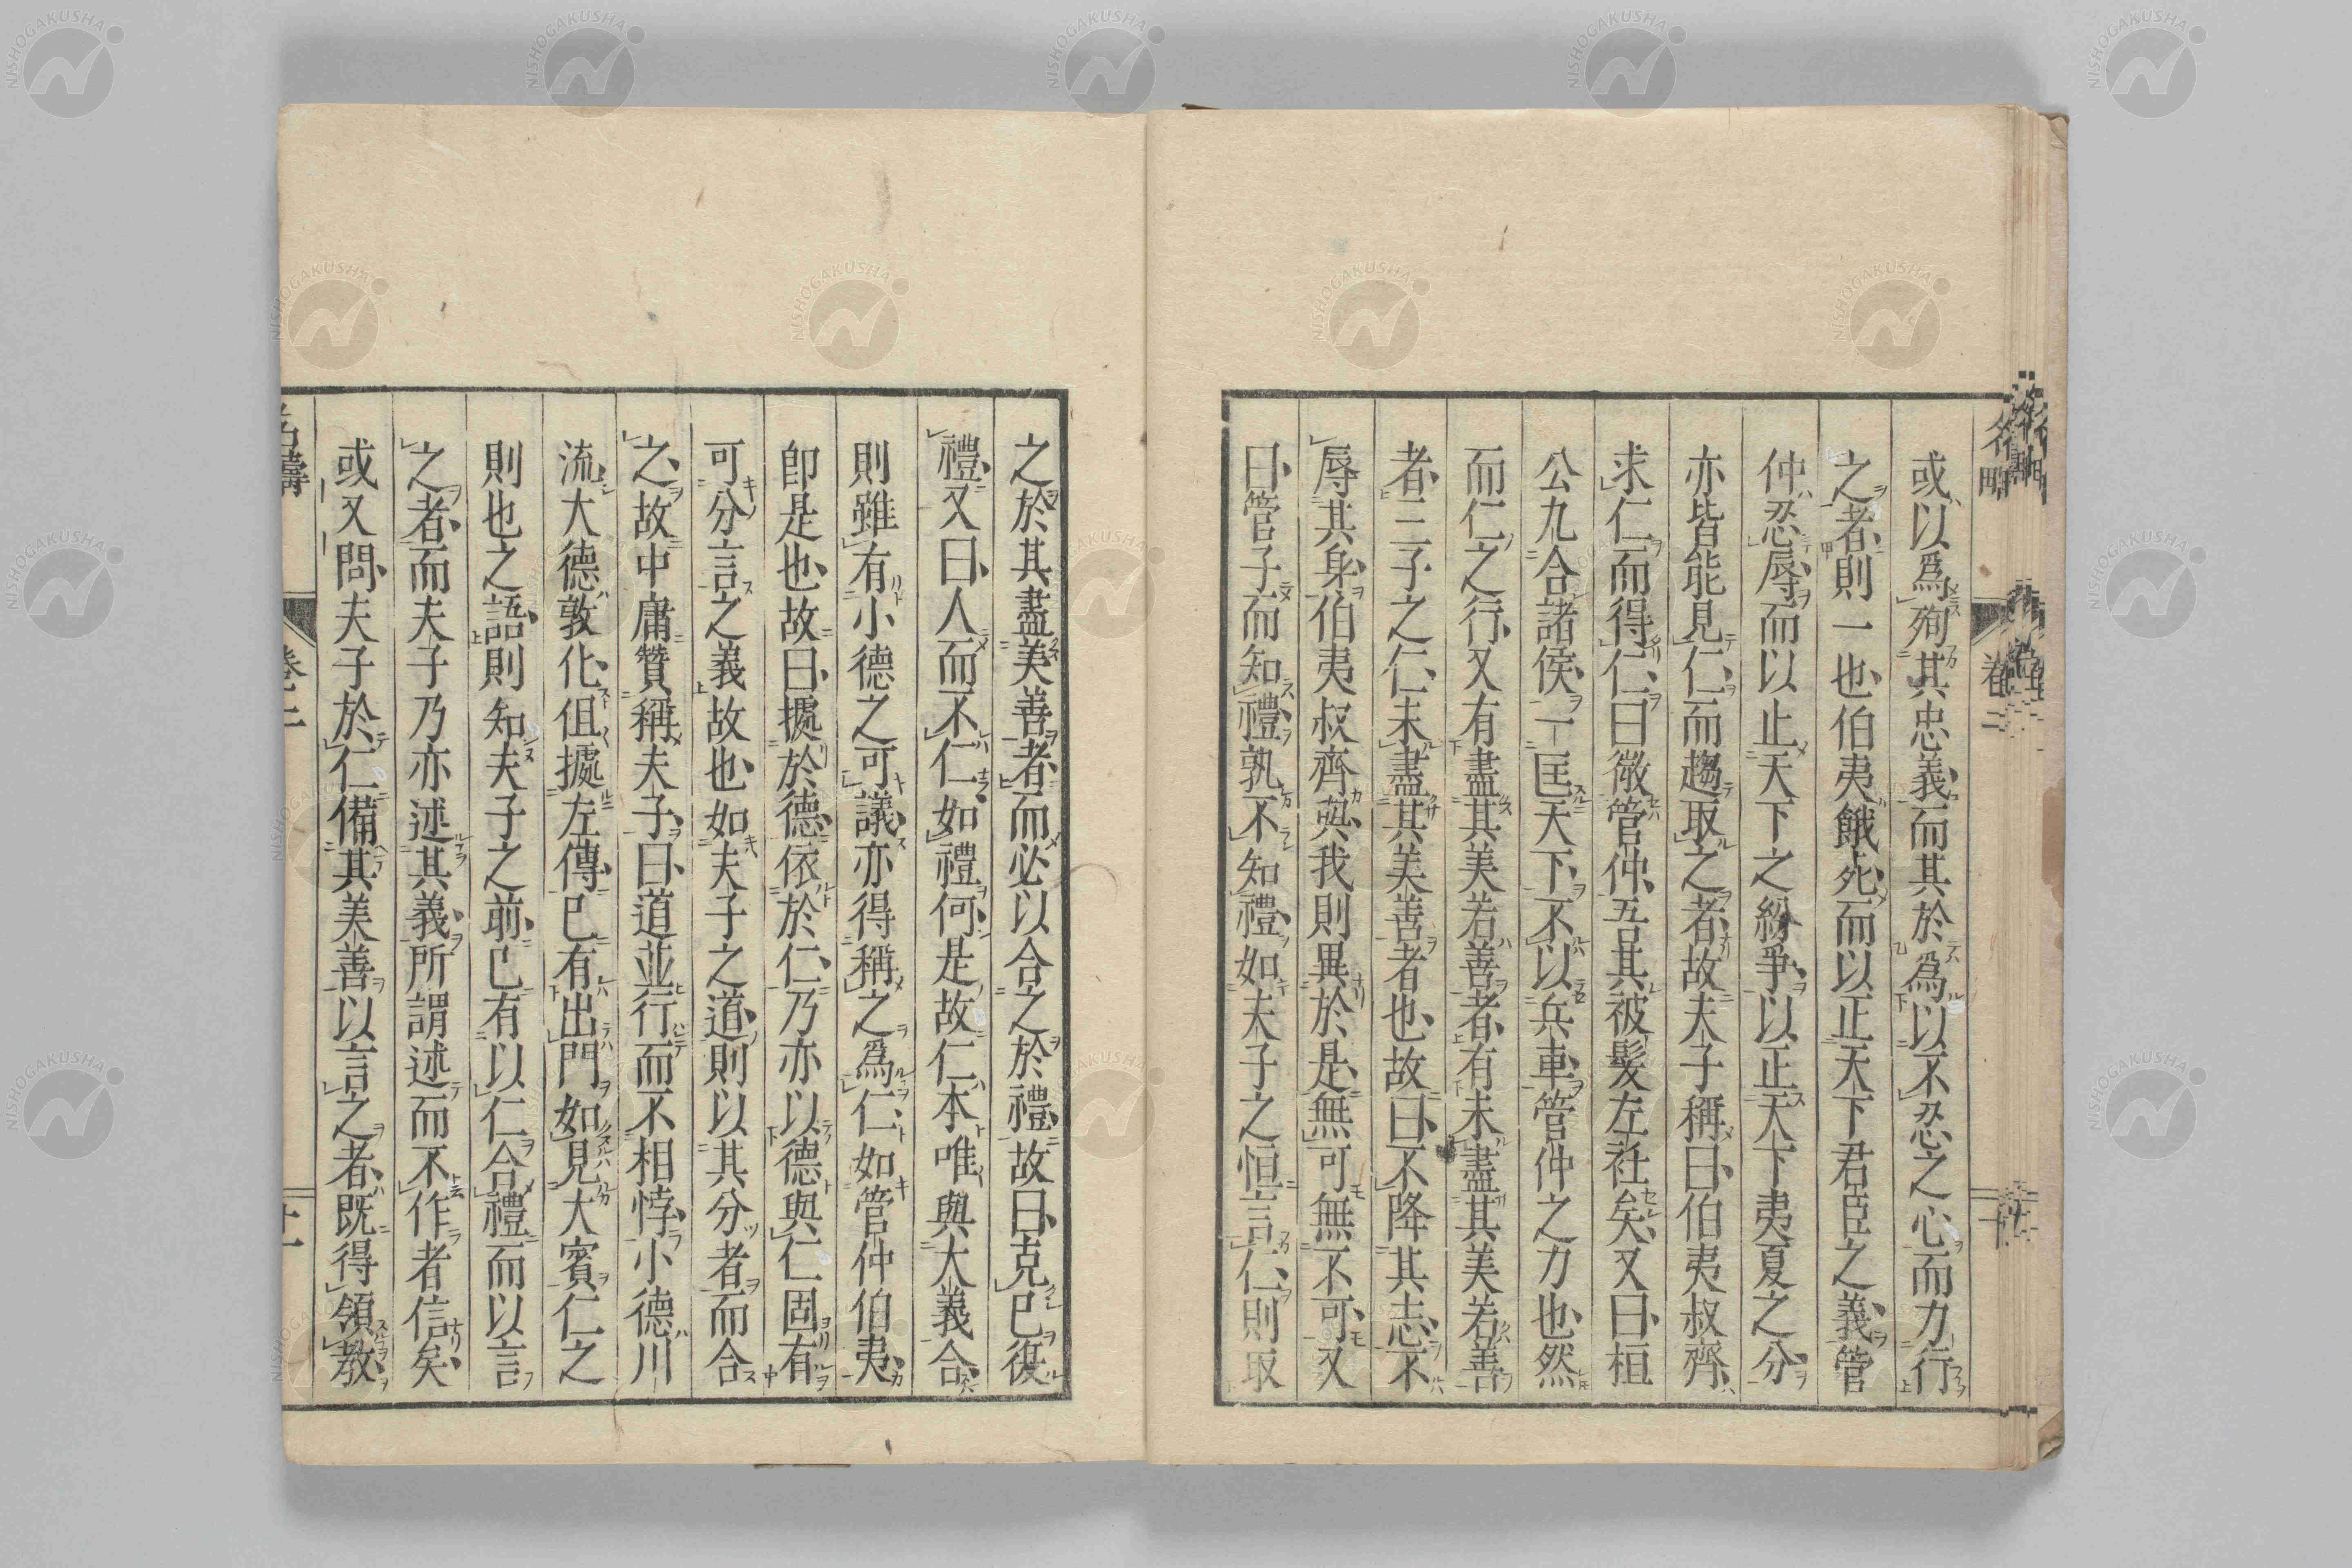 或以爲殉其忠義而其於爲以不忍之心而力行
之者則一也伯夷餓死而以正天下君臣之義管
仲忍辱而以止天下之紛爭以正天下夷夏之分
亦皆能見仁而趨取之者故夫子稱曰伯夷叔齊
求仁而得仁曰微管仲吾其被髮左衽矣又曰桓
公九合諸侯一匡天下不以兵車管仲之力也然
而仁之行又有盡其美若善者有未盡其美若善
者三子之仁未盡其美善者也故曰不降其志不
辱其身伯夷叔齊與我則異於是無可無不可又
曰管子而知禮孰不知禮如夫子之恒言仁則取
之於其盡美善者而必以合之於禮故曰克己復
禮又曰人而不仁如禮何是故仁本唯與大義合
則雖有小德之可議亦得稱之爲仁如管仲伯夷
卽是也故曰據於德依於仁乃亦以德與仁固有
可分言之義故也如夫子之道則以其分者而合
之故中庸贊稱夫子曰道並行而不相悖小德川
流大德敦化但據左傳已有出門如見大賓仁之
則也之語則知夫子之前已有以仁合禮而以言
之者而夫子乃亦述其義所謂述而不作者信矣
或又問夫子於仁備其美善以言之者既得領教
名疇
卷二
十一
NISHOGAKUSHA